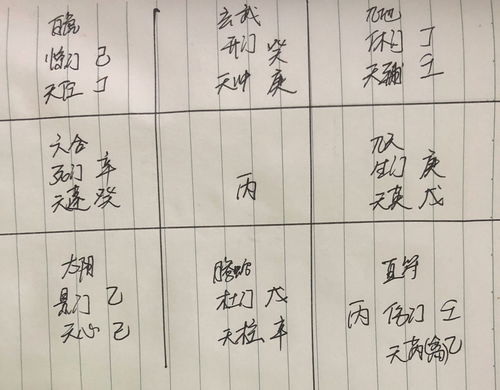 白虎
惊门 己
天任 丁
玄武
开门 癸
天冲 庚
九地
休门 丁
天辅 壬
六合
死门 辛
天蓬 癸
丙
九天
生门 庚
天英 戊
太阴
景门 乙
天心 己
螣蛇
杜门 戊
天柱 辛
直符
丙 伤门 壬
天芮禽乙